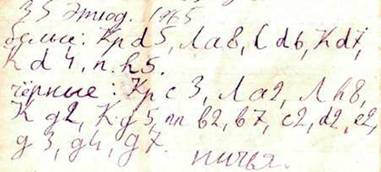 35 Этюд. 1965
белые: Kp d5, Л a8, С d6, К d7,
К d4, п. h5.
чёрные: Kp c3, Л a2, Л h8,
К g2, К g5, пп b2, b7, c2, d2, e2,
g3, g4, g7. ничья.